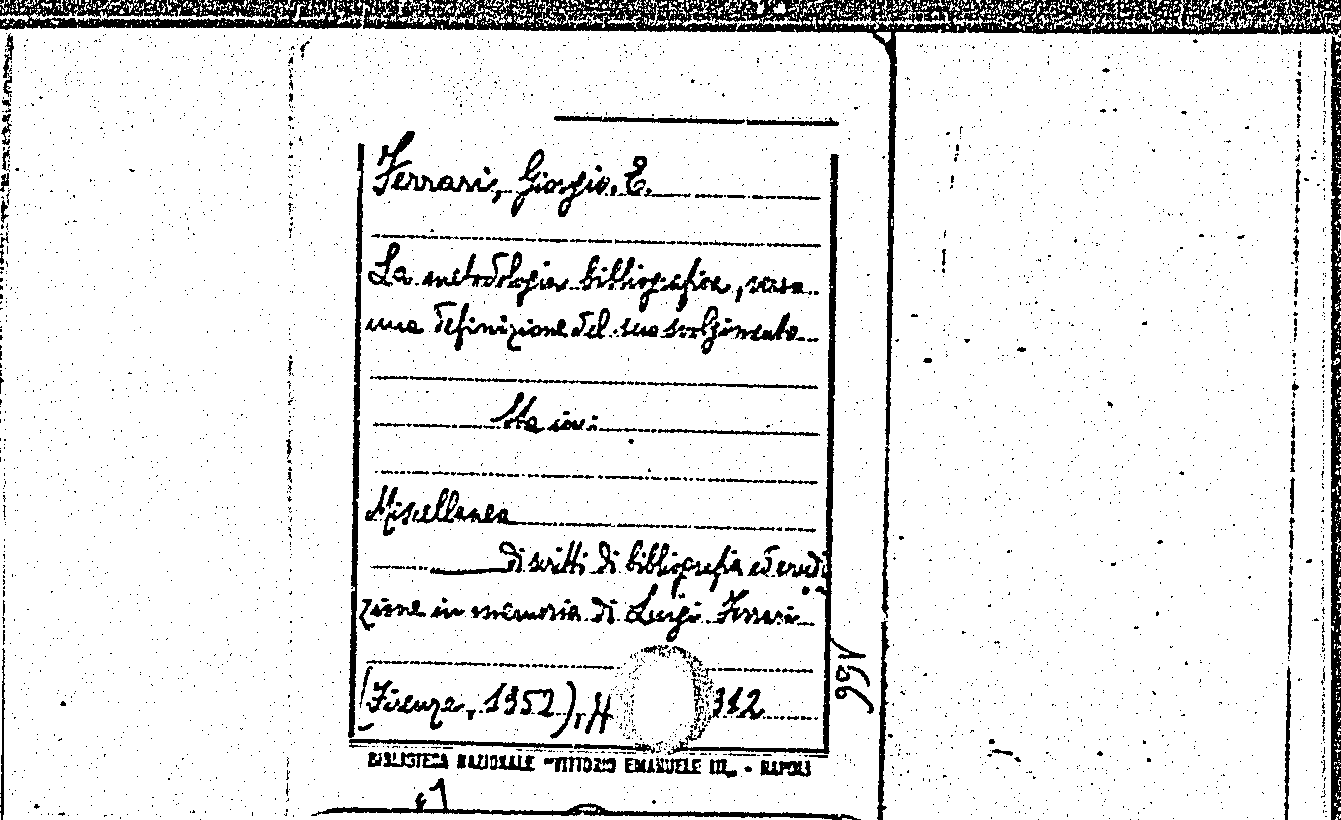 Ferrari, Giorgio. E.
La metodologia bibliografica, verso
una definizione del suo svolgimento
Sta in:
Miscellanea
di scritti di bibliografia ed erudi
zione in memoria di Luigi Ferrari
(Firenze, 1952), 312
BIBLIOTECA NAZIONALE "VITTORIO EMANUELE III" - NAPOLI
166